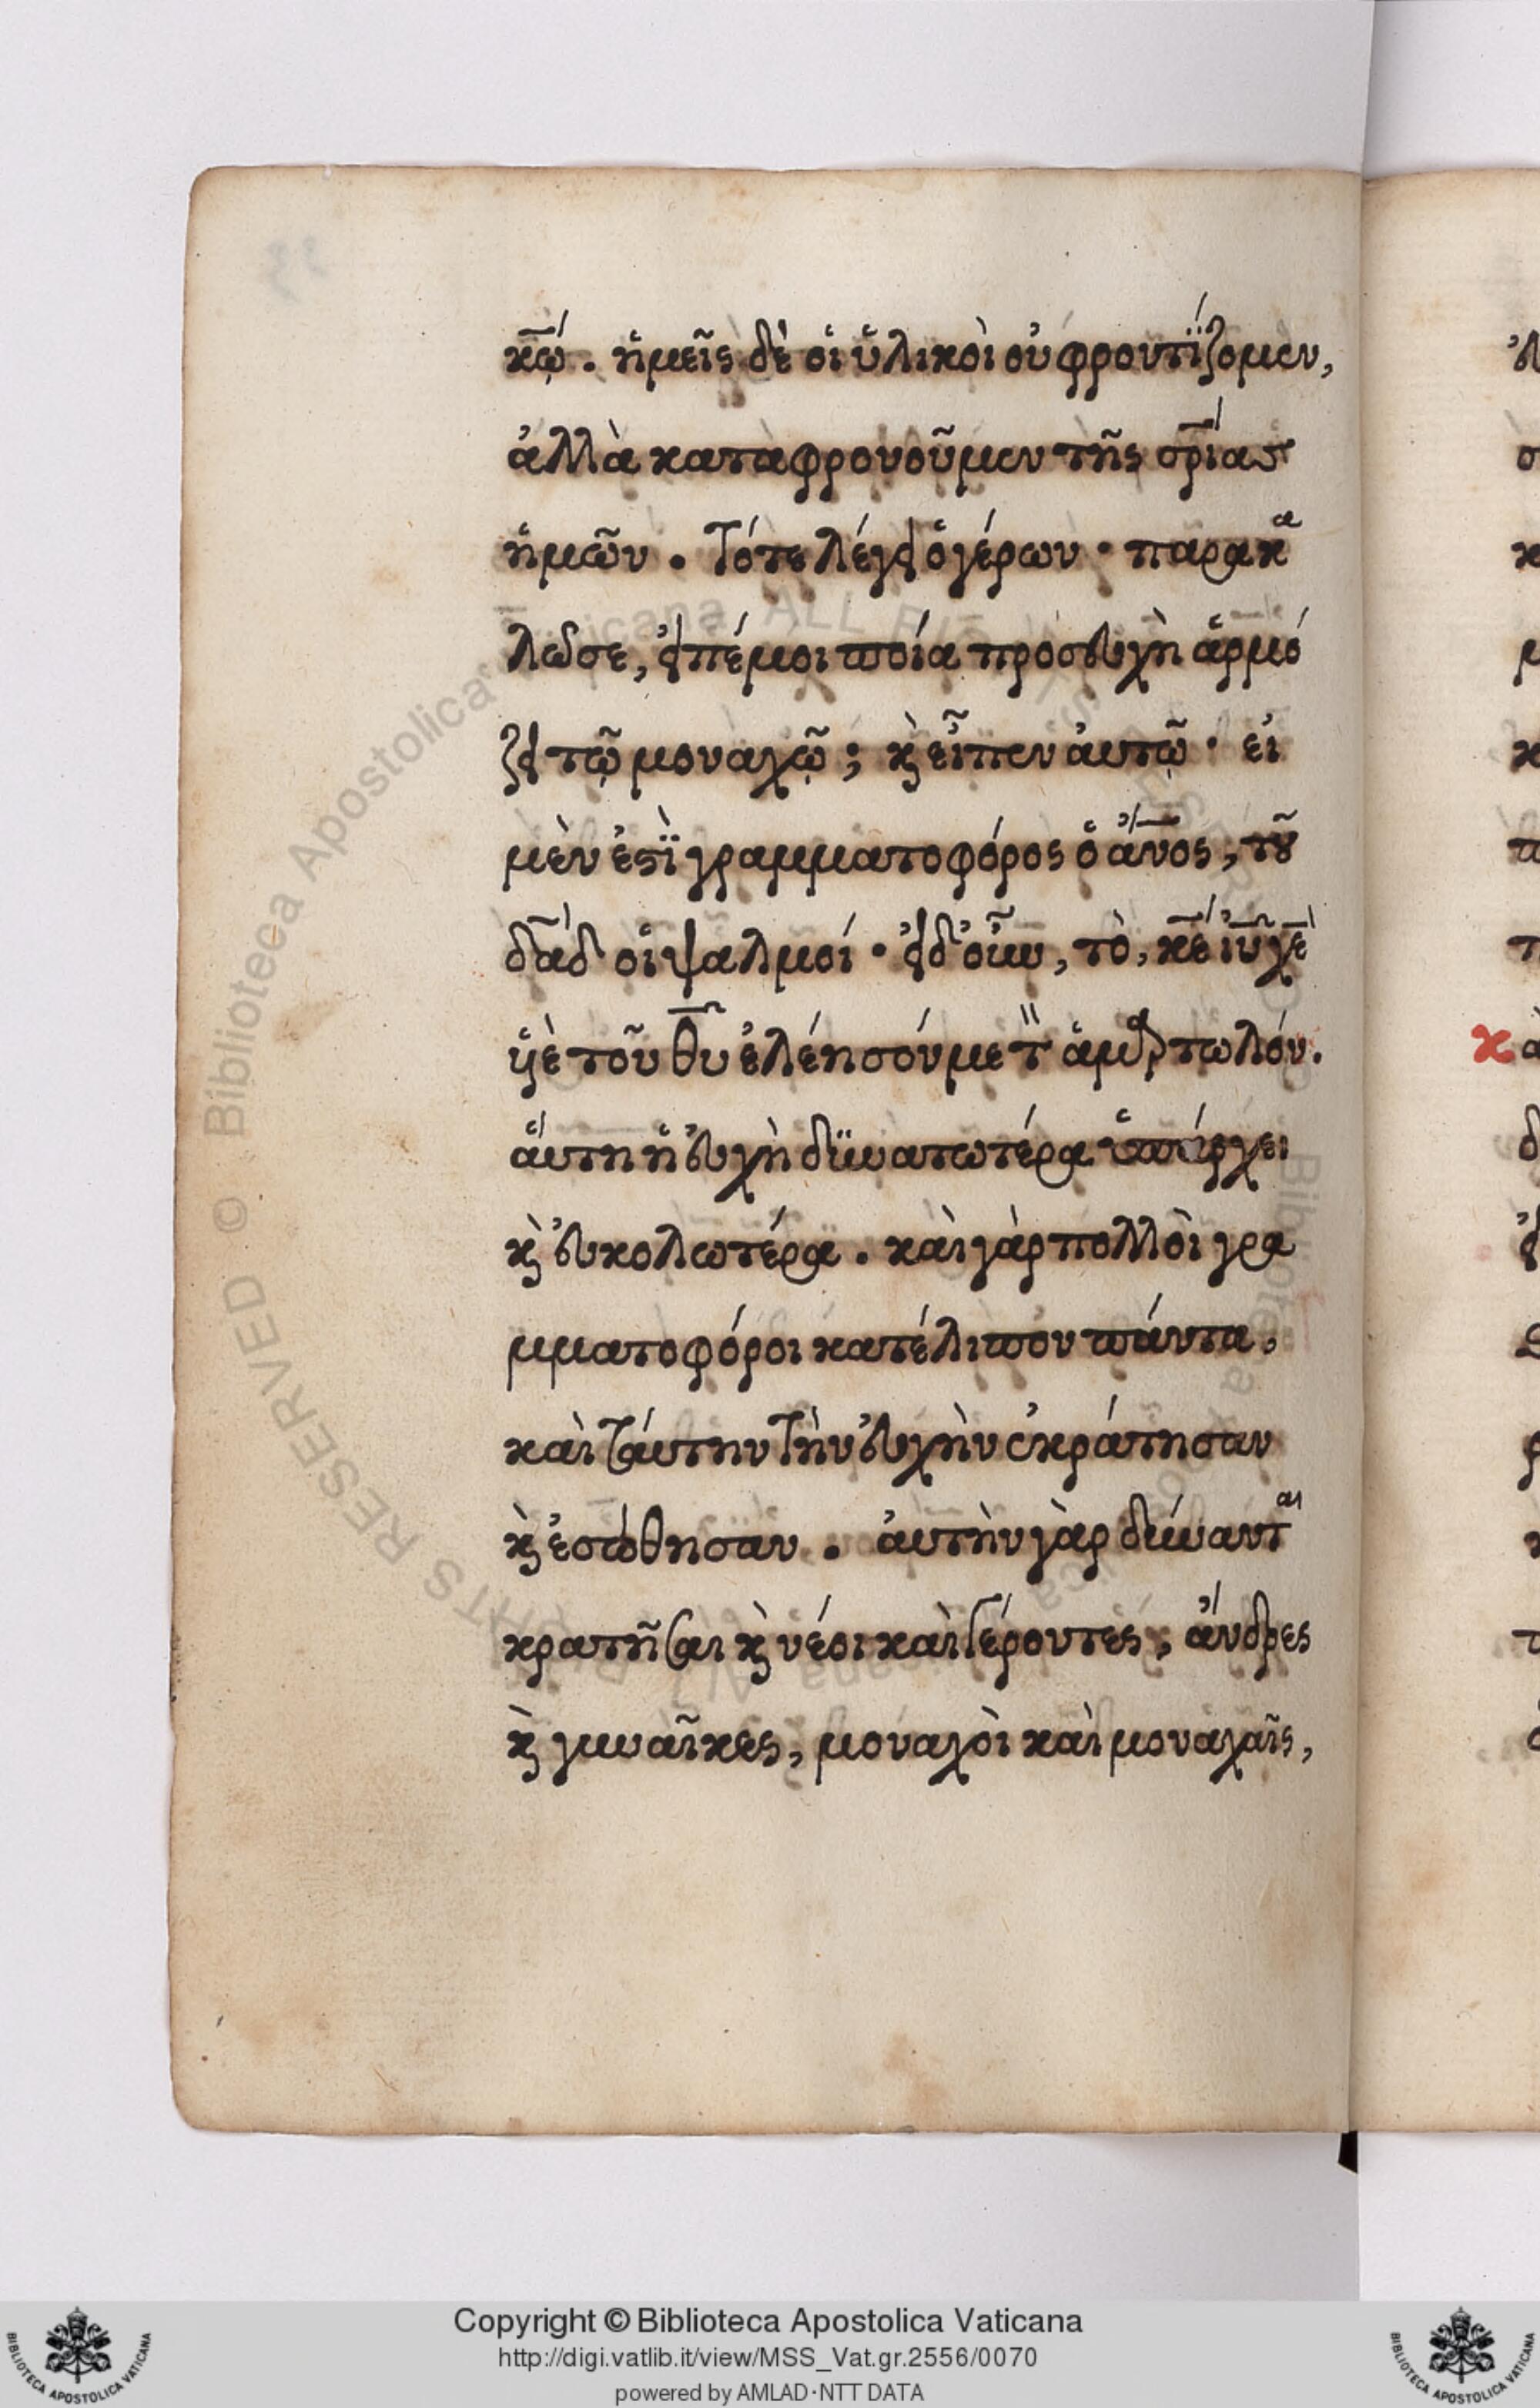 κ̅ῴ. ἡμεῖς δὲ οἱ ὑλικοὶ οὐ φροντίζομεν,
ἀλλὰ καταφρονοῦμεν τῆς σ̅ρ̅ίας
ἡμῶν. Τότε λέγει ὁ γέρων· παρακα
λῶ σε, εἰπέ μοι ποία προσευχὴ ἁρμό
ζει τῷ μοναχῷ; κ̀ εἶπεν ἀυτῷ· εἰ
μὲν ἐϛὶ γραμματοφόρος ὁ ἄν̅ος, τοῦ
δ̅ά̅δ οἱ ψαλμοί· εἰ δ' οὖν, τὸ, κ̅ε ἰ̅υ χ̅ε
ὑὲ τοῦ θ̅υ ἐλέησόν με τὸν ἁμαρτωλόν.
ἄυτη ἡ ἐυχὴ δυνατωτέρα ὑπάρχει
κ̀ ἐυκολωτέρα. καὶ γὰρ πολλοὶ γρα
μματοφόροι κατέλιπον πάντα,
καὶ ταύτην τὴν ἐυχὴν ἐκράτησαν
κ̀ ἐσώθησαν. ἀυτὴν γὰρ δύνανται
κρατῆσαι κ̀ νέοι καὶ γέροντες, ἄνδρες
κ̀ γυναῖκες, μοναχοὶ καὶ μοναχαῖς,
Copyright © Biblioteca Apostolica Vaticana
http://digi.vatlib.it/view/MSS_Vat.gr.2556/0070
powered by AMLAD·NTT DATA